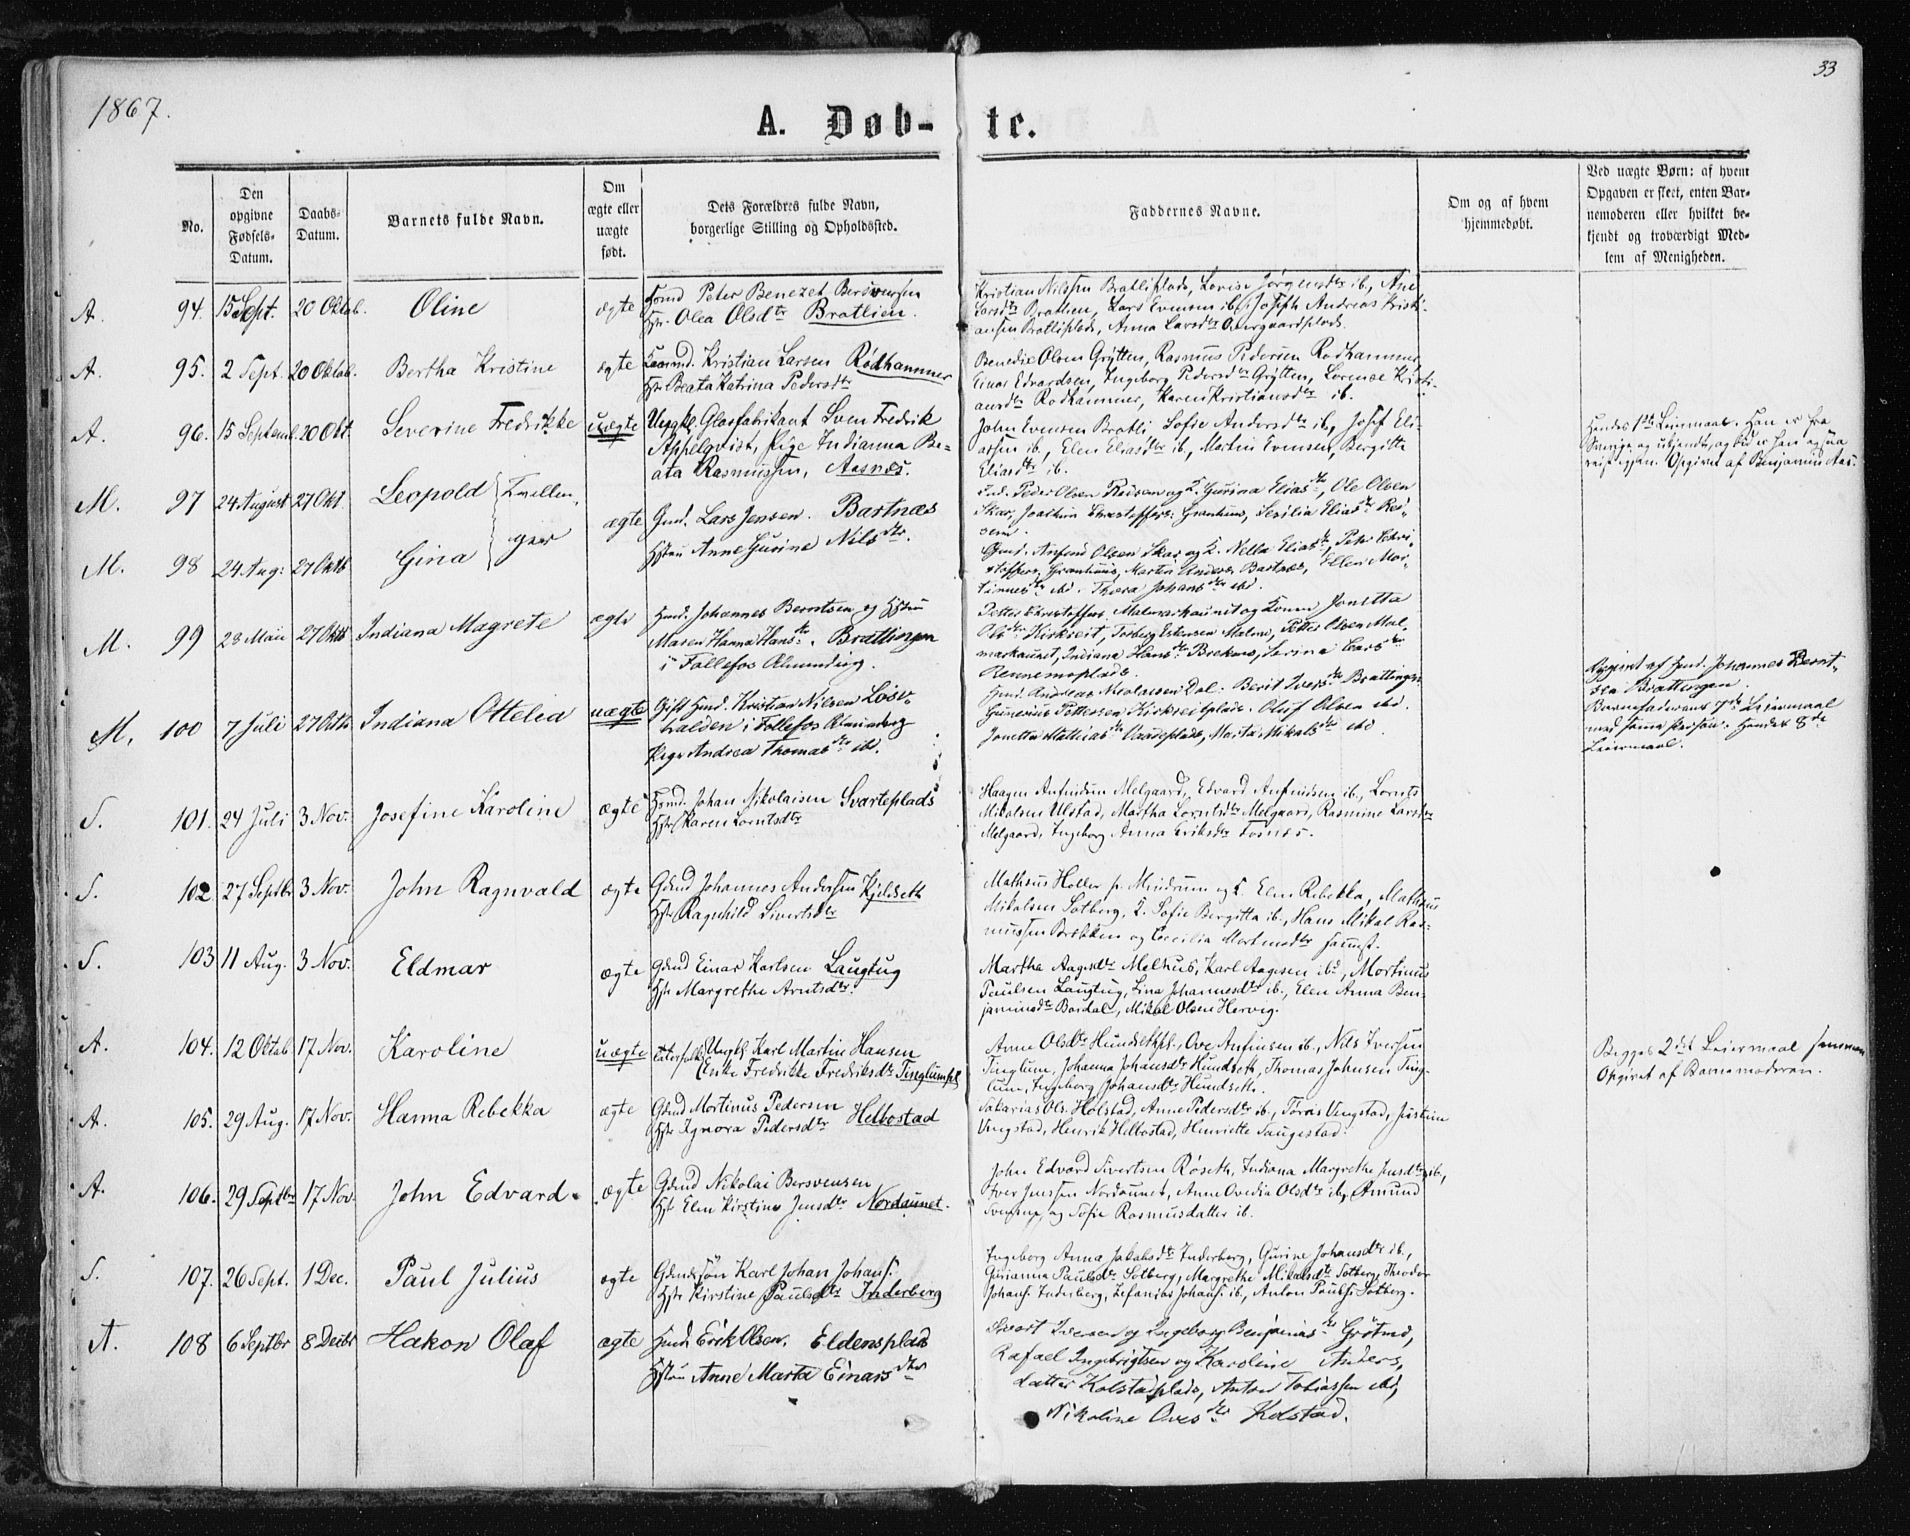 1867.
33
A. Døb-
te.
No.
Den opgivne Fødsels-Datum.
Daabs-Datum.
Barnets fulde Navn.
Om ægte eller uægte født.
Dets Forældres fulde Navn, borgerlige Stilling og Opholdssted.
Faddernes Navne.
Om og af hvem hjemmedøbt.
Ved uægte Børn: af hvem Opgaven er skeet, enten Barnemoderen eller hvilket bekjendt og troværdigt Medlem af Menigheden.
A. 94. 15 Sept. 20 Oktob. Oline ægte Peter Benezet Bersvensen
Olea Olsdtr Bratlien.
Kristian Nilssen Bratliplads, Lovise Jørgensdtr ib, Ane
Larsdtr Bratlien, Lars Evensen ib, Joseph Andreas Kristi-
ansen Bratliplads, Anna Larsdtr
A. 95. 2 Sept. 20 Oktob. Bertha Kristine ægte Kristian Larsen Rødhammer
Beata Katrina Pedersdtr
Benedik Olsen Grytten, Rasmus Pedersen Rodhammer,
Einar Edvardsen, Ingeborg Pedersdtr Grytten, Lorense Kristi-
ansdtr Rodhammer, Karen Kristiansdtr ib.
A. 96. 15 Septemb. 20 Okt. Severine Fredrikke uægte Ungkl. Glasfabrikant Sven Fredrik
Appelqvist, Pige Indianna Be-
ata Rasmussen, Aasnes.
John Evensen Bratli Sofie Andersdtr ib, Josef Eli-
assen ib., Elen Eliasdtr ib., Martin Evensen, Bergitte
Eliasdtr ib.
Hendes 1ste Leiermaal. Han er fra
Sverige og ukjendt, og
Opgivet af Benjamin Aas.
M. 97 24 August 27 Okt. Leopold Tvillen-
ægte Gmd. Lars Jensen. Bartnæs
Hstru Anne Gurine Nilsdtr.
Peder Olsen og K. Gurina Eliasdtr, Ole Olsen
Skar, Joakim Christoffers. Grønhuus, Sesilia Eliasdtr
M. 98 24 Aug: 27 Oktb Gina ger
Olsen Skar og K. Nella Eliasdtr, Peter Chri-
stoffers. Grønhuus, Martin Anders. Bartnæs, Ellen Mar-
tinusdtr ibd. Thora Johansdtr ibd.
M. 99 28 Maii 27 Oktb Indiana Magrete ægte Hmd. Johannes Berntsen og Hstru
Maren Hanna Hansdtr. Brattingen
i Follefos Almindig.
Petter Christoffers. Malmarkaunet og Konen Jonetta
Olsdtr Kirkreit, Torberg Estensen Malmo, Petter Olsen Mal-
markaunet, Indiana Hansdtr Brekaas, Serina Larsdtr
Rennemsplads.
Opgivet af Hmd. Johannes Bernt-
sen Brattingen.
M. 100 7 Juli 27 Oktb. Indiana Ottelia uægte Gift Hmd. Kristian Nilsen
i Follefos Almindig
Pige Andrea Thomasdtr ibd.
Hmd. Andreas Nicolaisen Dal. Berit Iversdtr Brattingen
Gunerius Pettersen Kirkreitplads. Oluf Olsen ibd.
Jonetta Mattiasdtr Marta Mikalsdtr ibd
Barnefaderens 7de Leiermaal
med samme Person. Hendes 8de
Leiermaal.
S. 101. 24 Juli 3 Nov. Josefine Karoline ægte Johan Nikolaisen Svarteplads
Karen Lorntsdtr
Haagen Anfindsen Melgaard, Edvard Anfindsen ib., Lornts
Mikalsen Ulstad, Martha Lorntsdtr Melgaard, Rasmine Larsdtr
Melgaard, Ingeborg Anna Eriksdtr
S. 102 27 Septbr 3 Nov. John Ragnvald ægte Gdmd Johannes Anderssen Kjelseth
Hstr Ragnhild Sivertsdtr
Matheus Holler p. Mindrum og K. Elen Rebekka, Matheus
Mikalsen Sotberg, K. Sofie Bergitta ib., Hans Mikal Ras-
mussen Brekken og Cecilia
S. 103 11 Aug. 3 Nov. Eldmar ægte Gdmd Einar Karlsen Laugtug
Hstr Margrethe Arntsdtr.
Martha Aagesdtr Melhus, Karl Aagesen ibd, Mortinus
Paulsen Laugtug, Lina Johannesdtr ib., Elen Anna Ben-
jaminsdtr Bardal, Mikal Olsen Hervig.
A. 104. 12 Oktob 17 Nov. Karoline uægte Ungkl. Karl Martin Hansen
Enke Fredrikke Fredriksdtr Tinglumpl.
Anne Olsdtr Ove Anfinsen ib., Nils Iversen
Tinglum, Johanna Johansdtr Hundseth, Thomas Johnsen Ting-
lum, Ingeborg Johansdtr Hundseth.
Begges 2det Leiermaal sammen
Opgivet af Barnemoderen.
A. 105. 29 Aug. 17 Nov. Hanna Rebekka ægte Gdmd Mortinus Pedersen
Hstr Ignora Pedersdtr Helbostad
Sakarias Ols. Holstad, Anne Pedersdtr ib., Tøres Vengstad, Justine
Vengstad, Henrik Helbostad, Henriette Saugestad.
A. 106. 29 Septbr 17 Nov. John Edvard. ægte Gdmd Nikolai Bersvensen
Hstr Elen Kirstine Jensdtr Nordaunet.
John Edvard Sivertsen Røseth, Indiana Margrethe Jensdtr ib.,
Iver Jenssen Nordaunet, Anne Ovedia Olsdtr ib., Amund
og Sofie Rasmusdatter ib.
S. 107. 26 Sept. 1 Dec. Paul Julius ægte Gdmdsøn Karl Johan Johans.
Hstr Kirstine Paulsdtr Inderberg
Ingeborg Anna Jakobsdtr Inderberg, Gurine Johansdtr ib.,
Gurianna Paulsdtr Sotberg, Margrethe Mikalsdtr Sotberg, Theodor
Johans. Inderberg, Zefanias Johans. ib., Anton Pauls. Sotberg.
A. 108 6 Septbr 8 Decbr Hakon Olaf ægte Hmd Erik Olsen. Eldensplads
Hstru Anne Marta Einarsdtr
Iversen og Ingeborg Benjaminsdtr
Rafael Ingebrigtsen og Karoline Anders,
datter Kolstadplads, Anton Tobiassen ibd,
Nikoline Ovesdtr Kolstad.